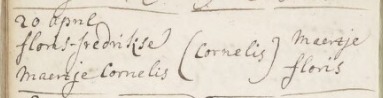 20 april
floris-fredrikse
Maertje Cornelis
(Cornelis)
Maertje
floris